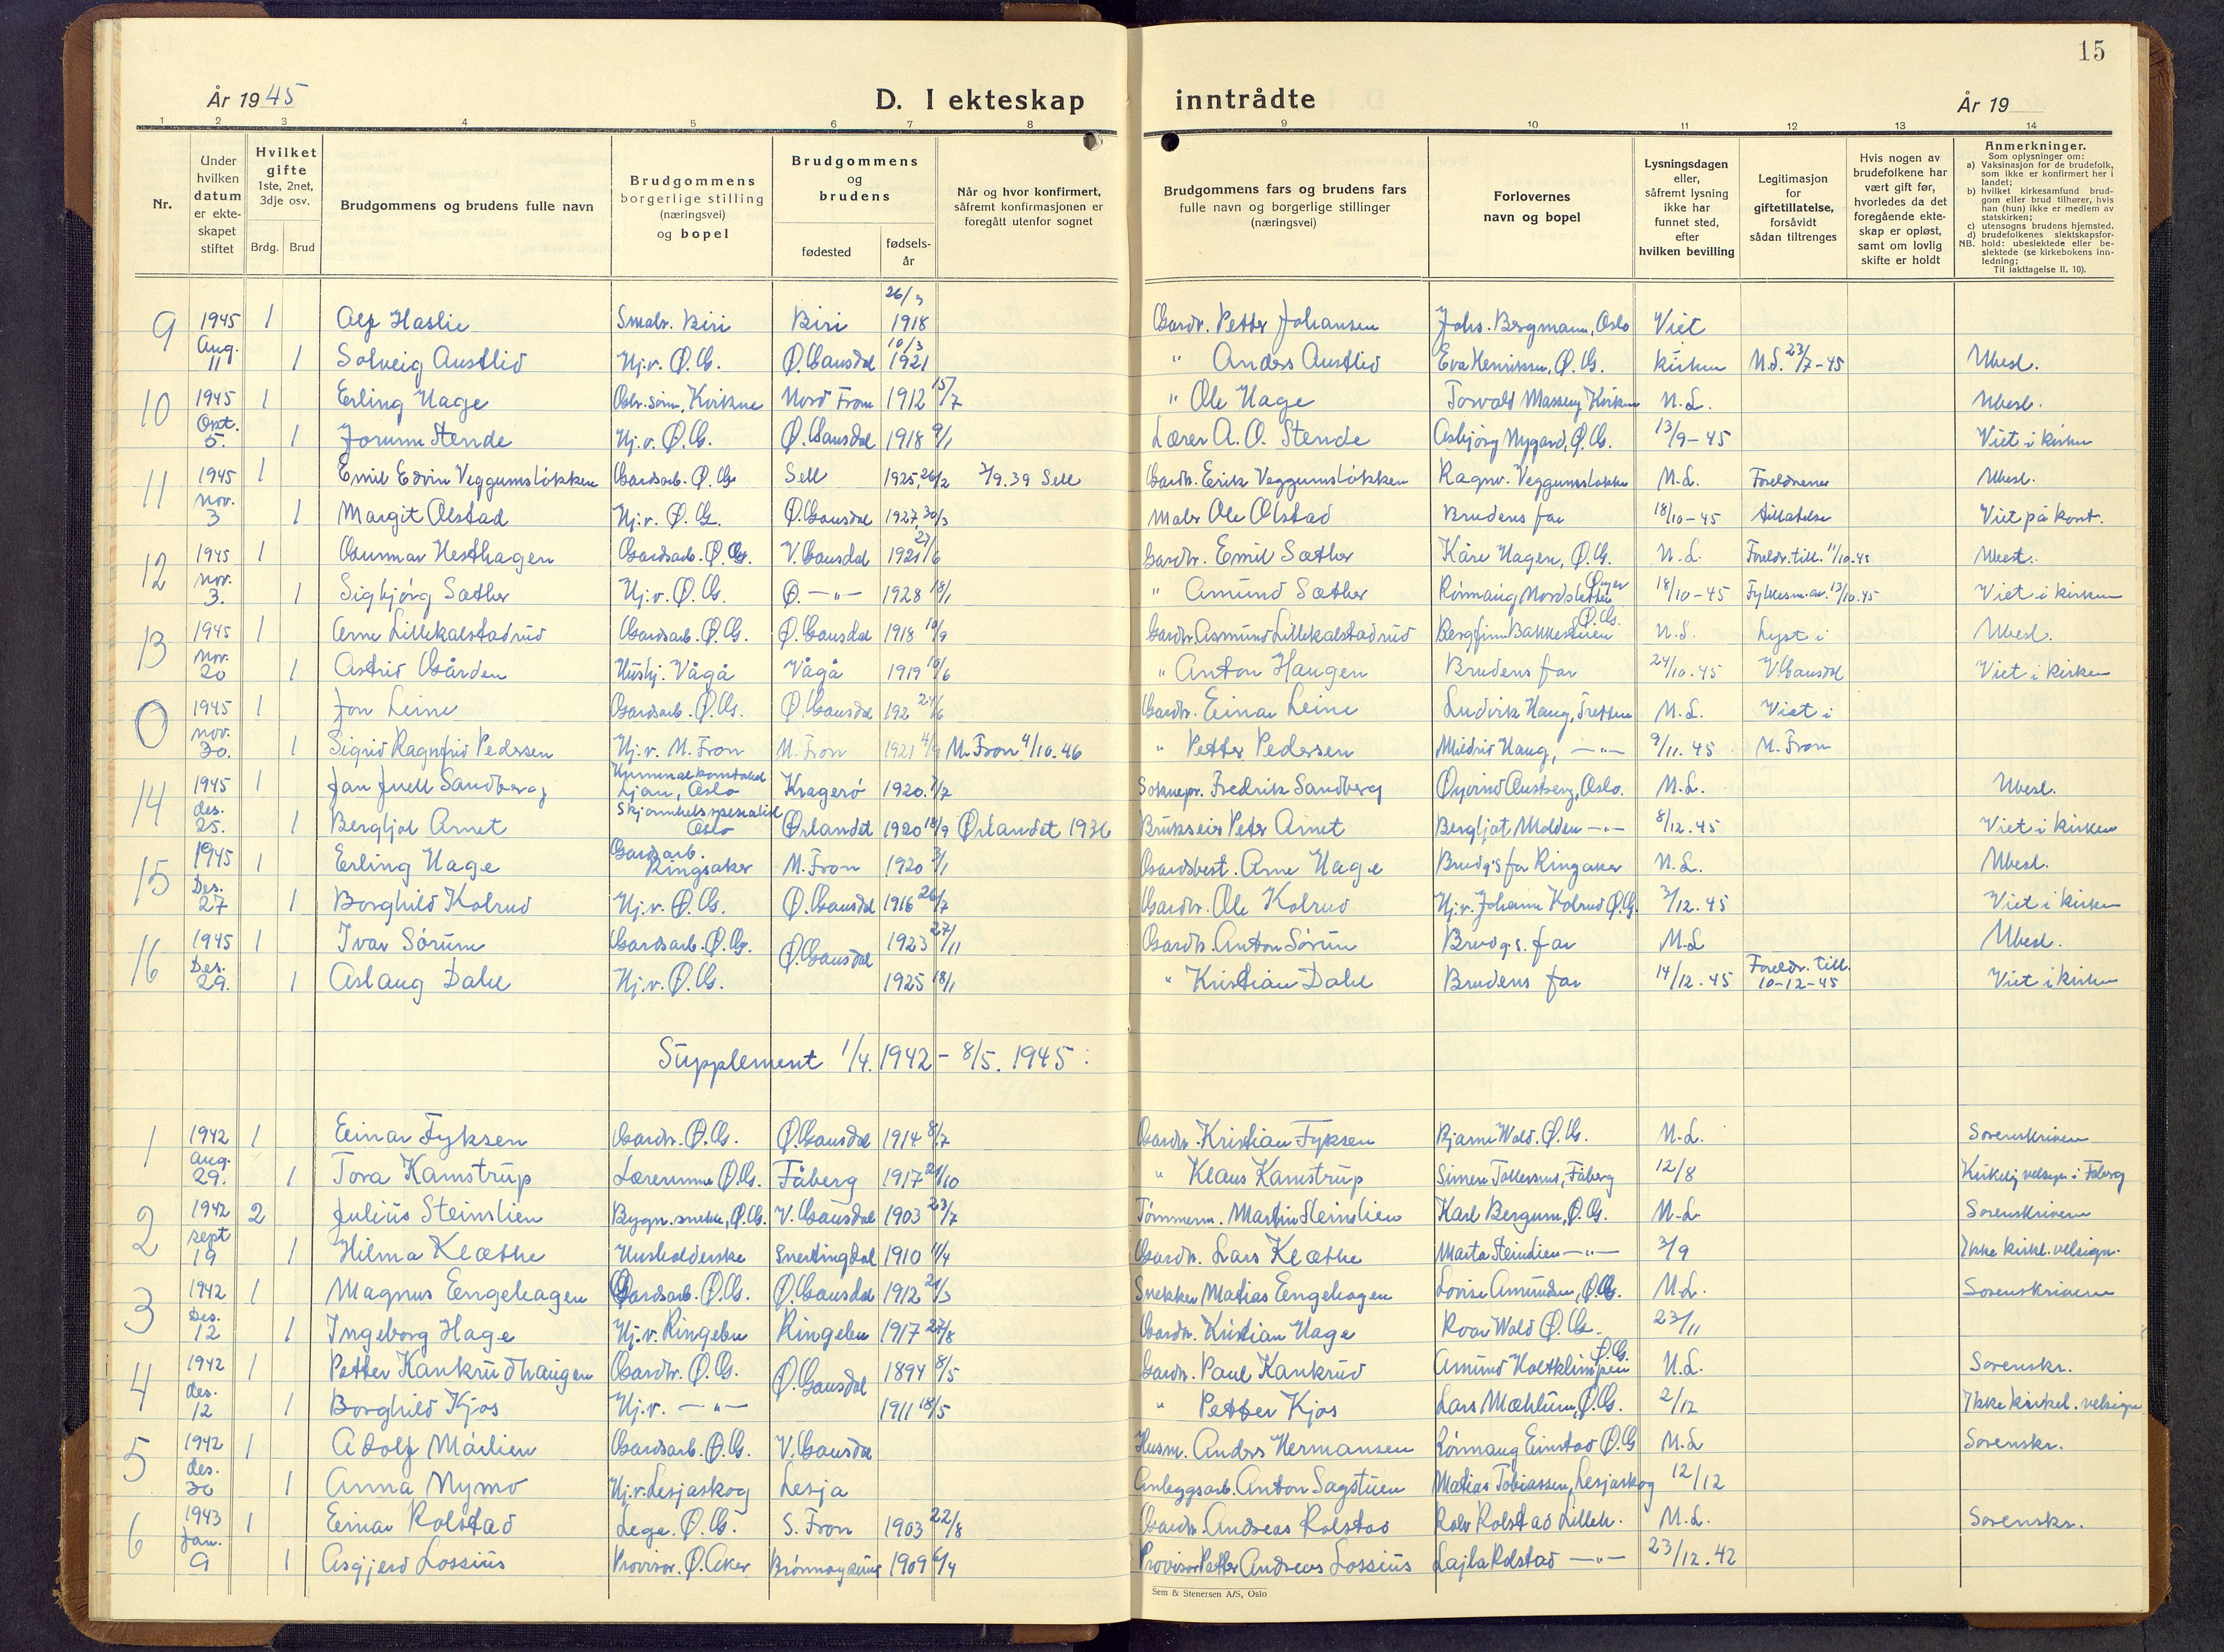 15
År 1945
D. I ekteskap inntrådte
År 19
1 2 3 4 5 6 7 8 9 10 11 12 13 14
Nr.
Under hvilken datum er ekteskapet stiftet
Hvilket gifte 1ste, 2net, 3dje osv.
Brdg. Brud
Brudgommens og brudens fulle navn
Brudgommens borgerlige stilling (næringsvei) og bopel
Brudgommens og brudens
fødested
fødselsår
Når og hvor konfirmert, såfremt konfirmasjonen er foregått utenfor sognet
Brudgommens fars og brudens fars fulle navn og borgerlige stillinger (næringsvei)
Forlovernes navn og bopel
Lysningsdagen eller, såfremt lysning ikke har funnet sted, efter hvilken bevilling
Legitimasjon for giftetillatelse, forsåvidt sådan tiltrenges
Hvis nogen av brudefolkene har vært gift før, hvorledes da det foregående ekteskap er opløst, samt om lovlig skifte er holdt
Anmerkninger.
Som oplysninger om:
a) Vaksinasjon for de brudefolk, som ikke er konfirmert her i landet;
b) hvilket kirkesamfund brudgom eller brud tilhører, hvis han (hun) ikke er medlem av statskirken;
c) utensogns brudens hjemsted.
d) brudefolkenes slektskapsforhold: ubeslektede eller beslektede (se kirkebokens innledning;
NB.
Til iakttagelse II. 10).
9 1945 1 Alf Haslie Smabr. Biri Biri 26/3 1918 Gardbr. Petter Johansen Johs. Bergmann, Oslo Viet
Aug. 11 1 Solveig Austlid Hj.v. Ø.G. Ø. Gausdal 10/3 1921 " Anders Austlid Eva Henriksen, Ø.G. kirken N.L. 23/7-45 Ubesl.
10 1945 1 Erling Hage Gbr. sønn, Kvikne Nord Fron 1912 15/7 " Ole Hage Torvald Masseng Kvikne N.L. Ubesl.
Okt. 5. 1 Jorunn Stende Hj.v. Ø.G. Ø. Gausdal 1918 9/1 Lærer A. O. Stende Asbjørg Nygard, Ø.G. 13/9-45 Viet i kirken
11 1945 1 Emil Edvin Veggumsløkken Gardsarb. Ø.G. Sell 1925 26/2 3/9.39 Sell Gardbr. Erik Veggumsløkken Ragnv. Veggumsløkken N.L. Foreldrenes Ubesl.
nov. 3 1 Margit Olstad Hj.v. Ø.G. Ø. Gausdal 1927 30/3 Maler Ole Olstad Brudens far 18/10-45 tillatelse Viet på kont.
12 1945 1 Gunnar Hesthagen Gardsarb. Ø.G. V. Gausdal 1921 27/6 Gardbr. Emil Sæther Kåre Hagen, Ø.G. N.L. Foreldr. till. 11/10.45 Ubesl.
nov. 3. 1 Sigbjørg Sæther Hj.v. Ø.G. Ø. —"— 1928 18/1 " Amund Sæther Rønnaug Nordsletten Øyer 18/10-45 Fylkesm.av. 13/10.45 Viet i kirken
13 1945 1 Arne Lillekalstadrud Gardsarb. Ø.G. Ø. Gausdal 1918 10/9 Gardbr. Asmund Lillekalstadrud Bergfinn Bakkestuen Ø.G. N.L. Lyst i Ubesl.
nov. 20 1 Astrid Gården Hushj. Vågå Vågå 1919 10/6 " Anton Haugen Brudens far 24/10.45 V. Gausdal Viet i kirken
0 1945 1 Jon Leine Gardsarb. Ø.G. Ø. Gausdal 192 24/6 Gardbr. Einar Leine Ludvik Haug, Tretten N.L. Viet i
nov. 30. 1 Sigrid Ragnfrid Pedersen Hj.v. N. Fron N. Fron 1921 4/9 N. Fron 4/10.46 " Petter Pedersen Mildrid Haug, —"— 9/11.45 N. Fron
14 1945 1 Jan Juell Sandberg Ljan, Oslo Kragerø 1920 7/7 Soknepr. Fredrik Sandberg Øyvind Austberg, Oslo. N.L. Ubesl.
des. 25. 1 Bergljot Arnet Skjønnhetsspesialist Oslo Ørlandet 1920 18/9 Ørlandet 1936 Brukseier Peter Arnet Bergljot Molden —"— 8/12.45 Viet i kirken
15 1945 1 Erling Hage Gardsarb. Ringsaker N. Fron 1920 3/1 Gardsbest. Arne Hage Brudg's far Ringsaker N.L. Ubesl.
Des. 27 1 Borghild Kolrud Hj.v. Ø.G. Ø. Gausdal 1916 26/7 Gardbr. Ole Kolrud Hj.v. Johanne Kolrud Ø.G. 3/12.45 Viet i kirken
16 1945 1 Ivar Sørum Gardsarb. Ø.G. Ø. Gausdal 1923 27/11 Gardbr. Anton Sørum Brudg.s. far N.L Ubesl.
Des. 29. 1 Aslaug Dahl Hj.v. Ø.G. 1925 18/1 " Kristian Dahl Brudens far 14/12.45 Foreldr. till. 10-12-45 Viet i kirken
Supplement 1/4. 1942 – 8/5. 1945:
1 1942 1 Einar Fyksen Gardbr. Ø.G. Ø. Gausdal 1914 8/7 Gardbr. Kristian Fyksen Bjarne Wold. Ø.G. N.L. Sorenskriven
aug. 29. 1 Tora Kamstrup Lærerinne Ø.G. Fåberg 1917 21/10 " Klaus Kamstrup Simen Tollersrud, Fåberg 12/8 Kirkelig velsign. i Fåberg
2 1942 2 Julius Steinslien Bygn.snekk., Ø.G. V. Gausdal 1903 23/7 Tømmerm. Martin Steinslien Karl Bergum, Ø.G. N.L Sorenskriven
sept 19 1 Hilma Klæthe Husholderske Snertingdal 1910 11/4 Gardbr. Lars Klæthe Marta Steinslien —"— 3/9 Ikke kirkl. velsign.
3 1942 1 Magnus Engehagen Gardsarb. Ø.G. Ø. Gausdal 1912 21/3 Snekker Matias Engehagen Lovise Amundsen, Ø.G. N.L. Sorenskriven
Des. 12 1 Ingeborg Hage Hj.v. Ringebu Ringebu 1917 27/8 Gardbr. Kristian Hage Roar Wold Ø.G. 23/11
4 1942 1 Petter Kankrudhaugen Gardbr. Ø.G. Ø. Gausdal 1894 8/5 Gardbr. Paul Kankrud Amund Holtklimpen Ø.G. N.L. Sorenskr.
des. 12 1 Borghild Kjos Hj.v. —"— 1911 18/5 " Petter Kjos Lars Mæhlum, Ø.G. 2/12 Ikke kirkel. velsign
5 1942 1 Adolf Mæhlien Gardsarb. Ø.G. V. Gausdal Husm. Anders Hermansen Rønnaug Einstad Ø.G N.L Sorenskr.
des. 30 1 Anna Nymo Hj.v. Lesjaskog Lesja Anleggsarb. Anton Sagstuen Matias Tobiassen, Lesjaskog 12/12
6 1943 1 Einar Rolstad Lege. Ø.G. S. Fron 1903 22/8 Gardbr. Andreas Rolstad Rolv Rolstad Lilleh. N.L. Sorenskr.
Jan. 9 1 Asgjerd Lossius Provisor. Ø. Aker Brønnøysund 1909 6/4 Provisor Petter Andreas Lossius Lajla Rolstad —"— 23/12.42
Sem & Stenersen A/S, Oslo